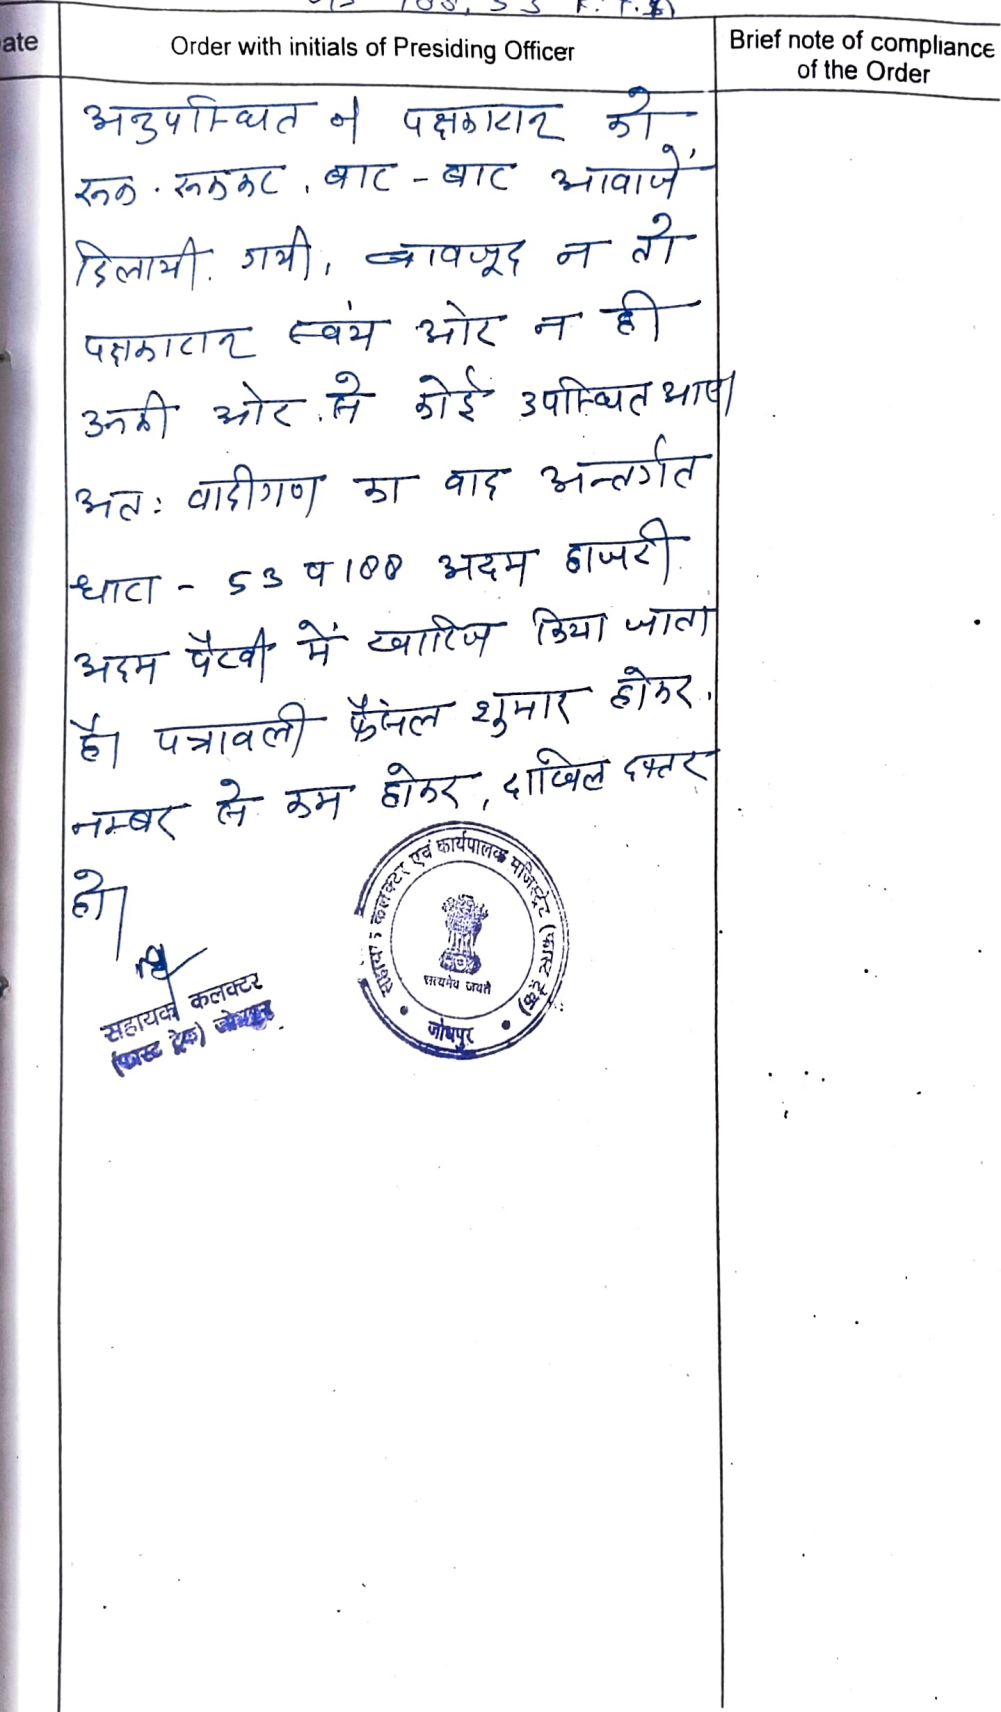 188, 53 R.T.A
ate
Order with initials of Presiding Officer
Brief note of compliance
of the Order
अनुपस्थित पक्षकारान को
रूक - रूककर, बार - बार आवाजें
दिलायी गयी, बावजूद न तो
पक्षकारान स्वंय ओर न ही
उनकी ओर से कोई उपस्थित आया
अतः वादीगण का वाद अन्तर्गत
धारा - 53 व 188 अदम हाजरी
अदम पैरवी में खारिज किया जाता
है। पत्रावली फैसल शुमार होकर
नम्बर से कम होकर, दाखिल दफ्तर
हो।
सहायक कलक्टर
(फास्ट ट्रेक) जोधपुर
सहायक कलक्टर एवं कार्यपालक मजिस्ट्रेट (फास्ट ट्रेक)
सत्यमेव जयते
जोधपुर